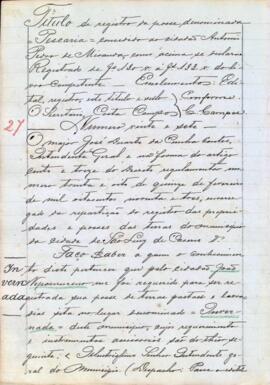 Titulo de registro da posse denominada
Pescaria = concedido ao cidadão Antonio
Pedro de Miranda, como acima se declara
Registrado de fs 130 v a fs 132 v do li
vro Competente. Emolumentos: Edi
tal, registro, este titulo e sello. Conforme
O Secretario, Costa Campos C. Campos
27
= Numero vinte e sete =
O major José Duarte da Cunha Pontes,
Intendente Geral e na forma do artigo
cento e treze do Decreto regulamentar nu
mero trinta e oito de quinze de fevereiro
de mil oitocentos noventa e tres, encarre
gado da repartição do registro das proprie
dades e posses das terras do municipio
da cidade de São Luiz de Caceres &
Faço saber a quem o conhecimen
to deste pertencer que pelo cidadão João
Nepomuceno me foi requerido para ser re
gistrada sua posse de terras pastaes e lavra
dias sita no logar denominado = Inver
nada = deste municipio, cujos requerimento
e instrumentos accessorios são do theor se
guinte. = Illustrissimo Senhor Intendente ge
ral do Municipio. (Despacho. Passe-se este
In
vern
ada